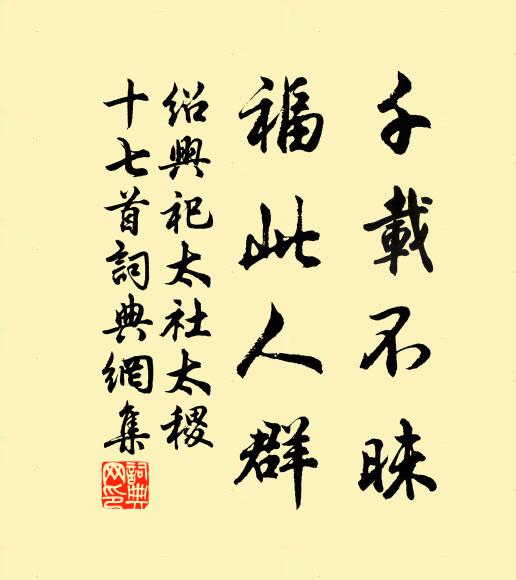 千載不昧
福此人群
紹興祀太社太稷
十七首詞典網集
詞典網印